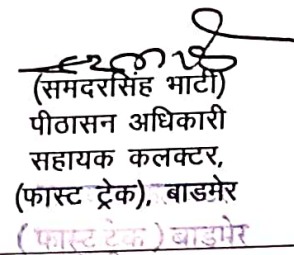 (समदरसिंह भाटी)
पीठासन अधिकारी
सहायक कलक्टर,
(फास्ट ट्रेक), बाडमेर
(फास्ट टेक) बाडमेर